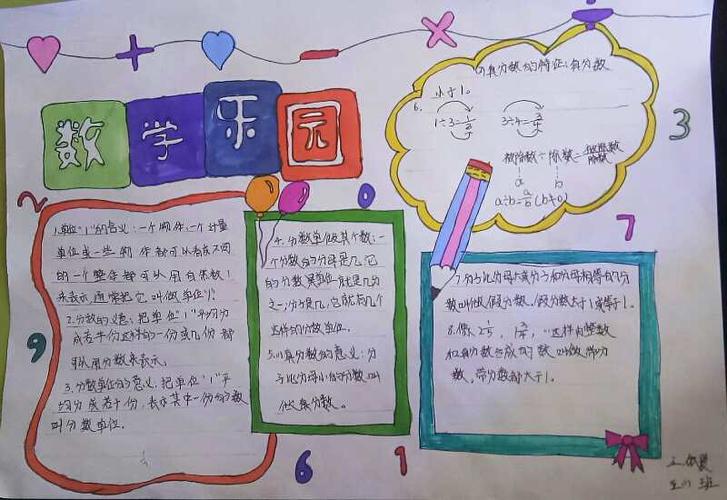 数学乐园
1.单位"1"的含义:一个物体、一个计量
单位或一些物体都可以看
的一个整体都可以用自然数1
来表示,通常把它叫做单位"1"。
2.分数的意义:把单位"1"平均分
成若干份,这样的一份或几份都
可以用分数来表示。
3.分数单位的意义:把单位"1"平
均分成若干份,表示其中一份的分数
叫分数单位。
4.分数单位及其个数:一
个分数的分母是几,它
的分数单位就是几分
之一,分子是几,它就有几个
这样的分数单位。
5.真分数的意义:分
子比分母小的分数叫
做真分数。
真分数的特征:真分数
小于1。
6.
1÷3=1/3 3÷4=3/4
被除数÷除数=被除数/除数
a b
a÷b=a/b(b≠0)
7.分子比分母大或分子和分母相等的分
数叫做假分数。假分数大于1或等于1。
8.像 这样由整数
和真分数合成的数叫做带分
数,带分数都大于1。
2
0
3
7
9
6
1
班